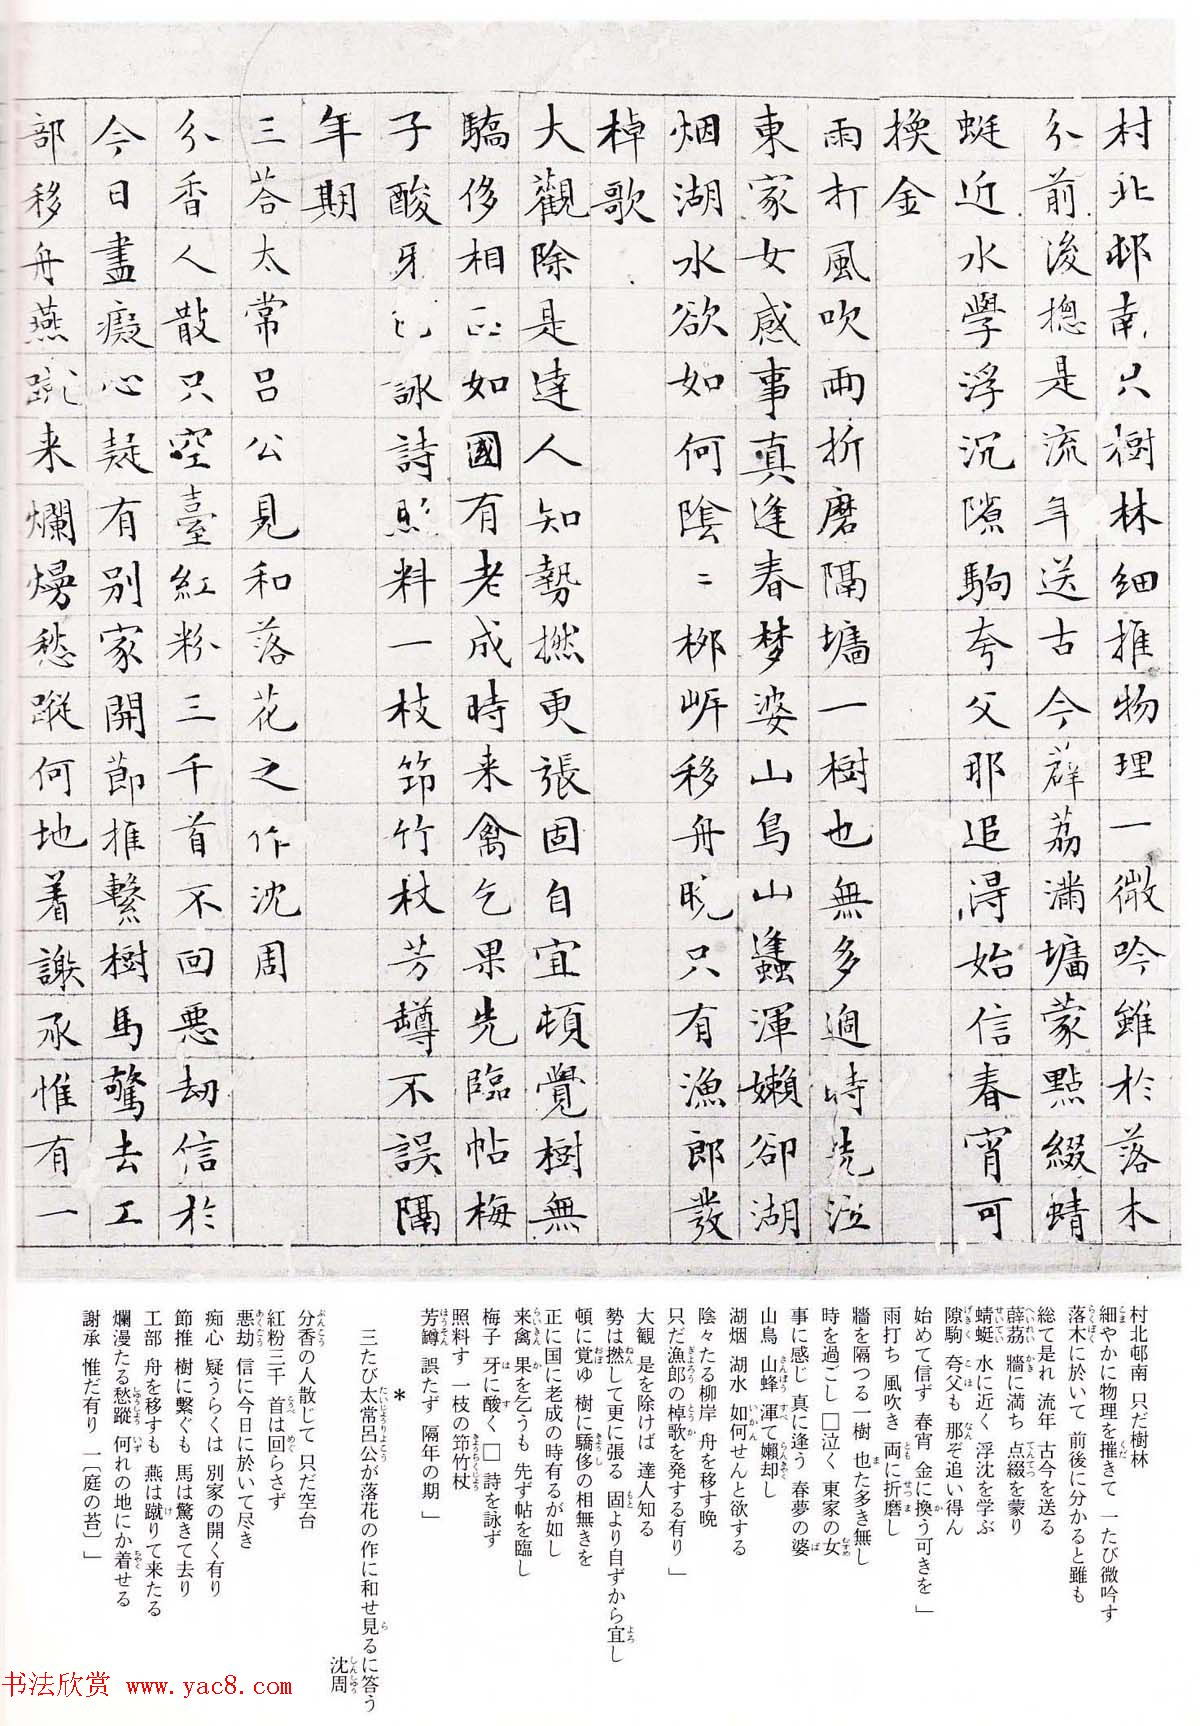 村北邨南只樹林細推物理一微吟雖於落木
分前後摠是流年送古今薜荔滿墻蒙點綴蜻
蜓近水學浮沉隙駒夸父那追得始信春宵可
換金
雨打風吹兩折磨隔墻一樹也無多過時先泣
東家女感事真逢春梦婆山鳥山蠭渾嬾卻湖
烟湖水欲如何陰〻柳岸移舟晚只有漁郎發
棹歌
大觀除是達人知勢撚更張固自宜頓覺樹無
驕侈相正如國有老成時来禽乞果先臨帖梅
子酸牙已詠詩照料一枝笻竹杖芳罇不誤隔
年期
三荅太常吕公見和落花之作沈周
分香人散只空臺紅粉三千首不回悪劫信於
今日盡癡心疑有別家開節推繫樹馬驚去工
部移舟燕蹴来爛熳愁蹤何地着謝承惟有一
村北邨南 只だ樹林
細やかに物理を摧きて 一たび微吟す
落木に於いて 前後に分かると雖も
総て是れ 流年 古今を送る
薜荔 牆に満ち 点綴を蒙り
蜻蜓 水に近く 浮沈を学ぶ
隙駒 夸父も 那ぞ追い得ん
始めて信ず 春宵 金に換う可きを」
雨打ち 風吹き 両に折磨し
牆を隔つる一樹 也た多き無し
時を過ごし □泣く 東家の女
事に感じ 真に逢う 春夢の婆
山鳥 山蜂 渾て嬾却し
湖烟 湖水 如何せんと欲する
陰々たる柳岸 舟を移す晩
只だ漁郎の棹歌を発する有り」
大観 是を除けば 達人知る
勢は撚して更に張る 固より自ずから宜し
頓に覚ゆ 樹に驕侈の相無きを
正に国に老成の時有るが如し
来禽 果を乞うも 先ず帖を臨し
梅子 牙に酸く □ 詩を詠ず
照料す 一枝の笻竹杖
芳罇 誤たず 隔年の期」
*
三たび太常呂公が落花の作に和せ見るに答う
沈周
分香の人散じて 只だ空台
紅粉三千 首は回らさず
悪劫 信に今日に於いて尽き
痴心 疑うらくは 別家の開く有り
節推 樹に繋ぐも 馬は驚きて去り
工部 舟を移すも 燕は蹴りて来たる
爛漫たる愁蹤 何れの地にか着せる
謝承 惟だ有り 一〔庭の苔〕」
书法欣赏 www.yac8.com